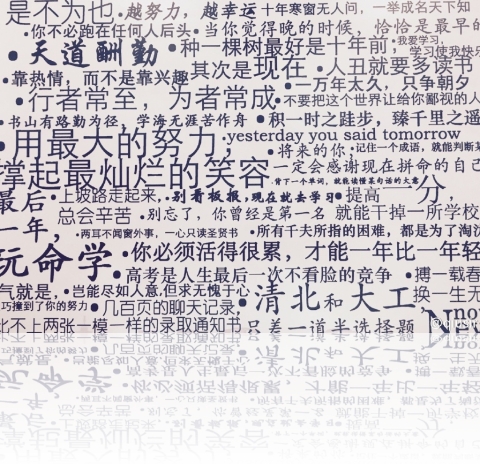 是不为也•越努力，越幸运•十年寒窗无人问，一举成名天下知
•你不必跑在任何人后头•当你觉得晚的时候，恰恰是最早的
•天道酬勤•种一棵树最好是十年前，•我爱学习，
学习使我快乐
•靠热情，而不是靠兴趣其次是现在•人丑就要多读书
•行者常至，为者常成•一万年太久，只争朝夕
•不要把这个世界让给你鄙视的人
•书山有路勤为径，学海无涯苦作舟•积一时之跬步，臻千里之遥
•用最大的努力，•yesterday you said tomorrow
撑起最灿烂的笑容•将来的你，•记住一个成语，就能判断某
一定会感谢现在拼命的自己
•背下一个单词，就能读懂某句话的大意
最后一年，•上坡路走起来，•别看板报，现在就去学习•提高一分，
总会辛苦•别忘了，你曾经是第一名 就能干掉一所学校
•两耳不闻窗外事，一心只读圣贤书•所有千夫所指的困难，都是为了淘汰
玩命学•你必须活得很累，才能一年比一年轻
•高考是人生最后一次不看脸的竞争•搏一载春
气就是，•岂能尽如人意，但求无愧于心•清北和大工，换一生无
巧撞到了你的努力•几百页的聊天记录，
比不上两张一模一样的录取通知书 只差一道半选择题